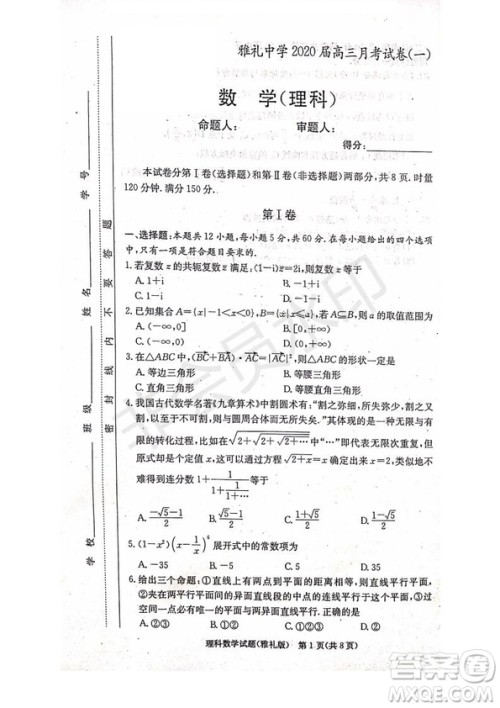 雅礼中学2020届高三月考试卷(一)
数 学(理科)
命题人： 审题人：
得分：
本试卷分第Ⅰ卷(选择题)和第Ⅱ卷(非选择题)两部分,共8页.时量
120分钟.满分150分.
第Ⅰ卷
一、选择题：本题共12小题,每小题5分,共60分,在每小题给出的四个选项
中,只有一项是符合题目要求的.
1.若复数z的共轭复数z̄满足,(1-i)z̄=2i,则复数z̄等于
A.1+i B.-1+i
C.1-i D.-1-i
2.已知集合A={x|-1<x<0},B={x|x≤a},若A⊆B,则a的取值范围为
A.(-∞,0] B.[0,+∞)
C.(-∞,0) D.(0,+∞)
3.在△ABC中,(BC+BA)·AC=|AC|²,则△ABC的形状一定是
A.等边三角形 B.等腰三角形
C.直角三角形 D.等腰直角三角形
4.我国古代数学名著《九章算术》中割圆术有："割之弥细,所失弥少,割之
又割,以至于不可割,则与圆周合体而无所失矣."其体现的是一种无限与有
限的转化过程,比如在√2+√2+√2+…中"…"即代表无限次重复,但
原式却是个定值x,这可以通过方程√2+x=x确定x=2,则按照上述思
路得到无限连分数1+1/(1+1/(1+…))
A.(-√5-1)/2 B.(√5-1)/2 C.(1+√5)/2 D.(1-√5)/2
5.(1-x²)(x-1/x)⁶展开式中的常数项为
A.-35 B.-5 C.5 D.35
6.给出三个命题：①直线上有两点到平面的距离相等,则直线平行平面；
②夹在两平行平面间的异面直线段的中点的连线平行于这个平面；③直线
理科数学试题(雅礼版) 第1页(共8页)
学校 班级 姓名 学号
密 封 线 内 不 要 答 题
非会员水印